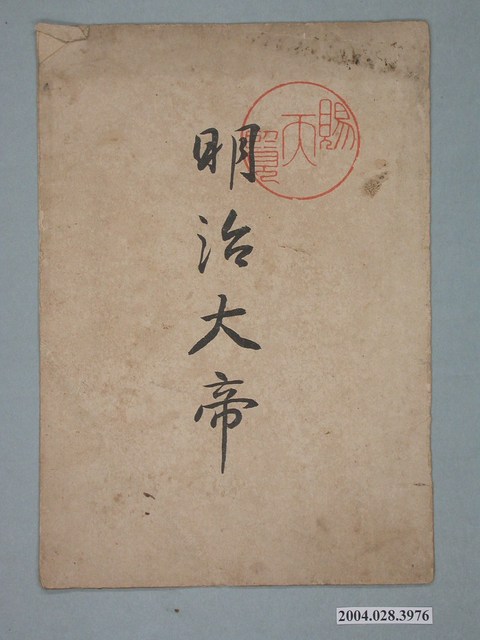 賜天覽
明治大帝
2004.028.3976